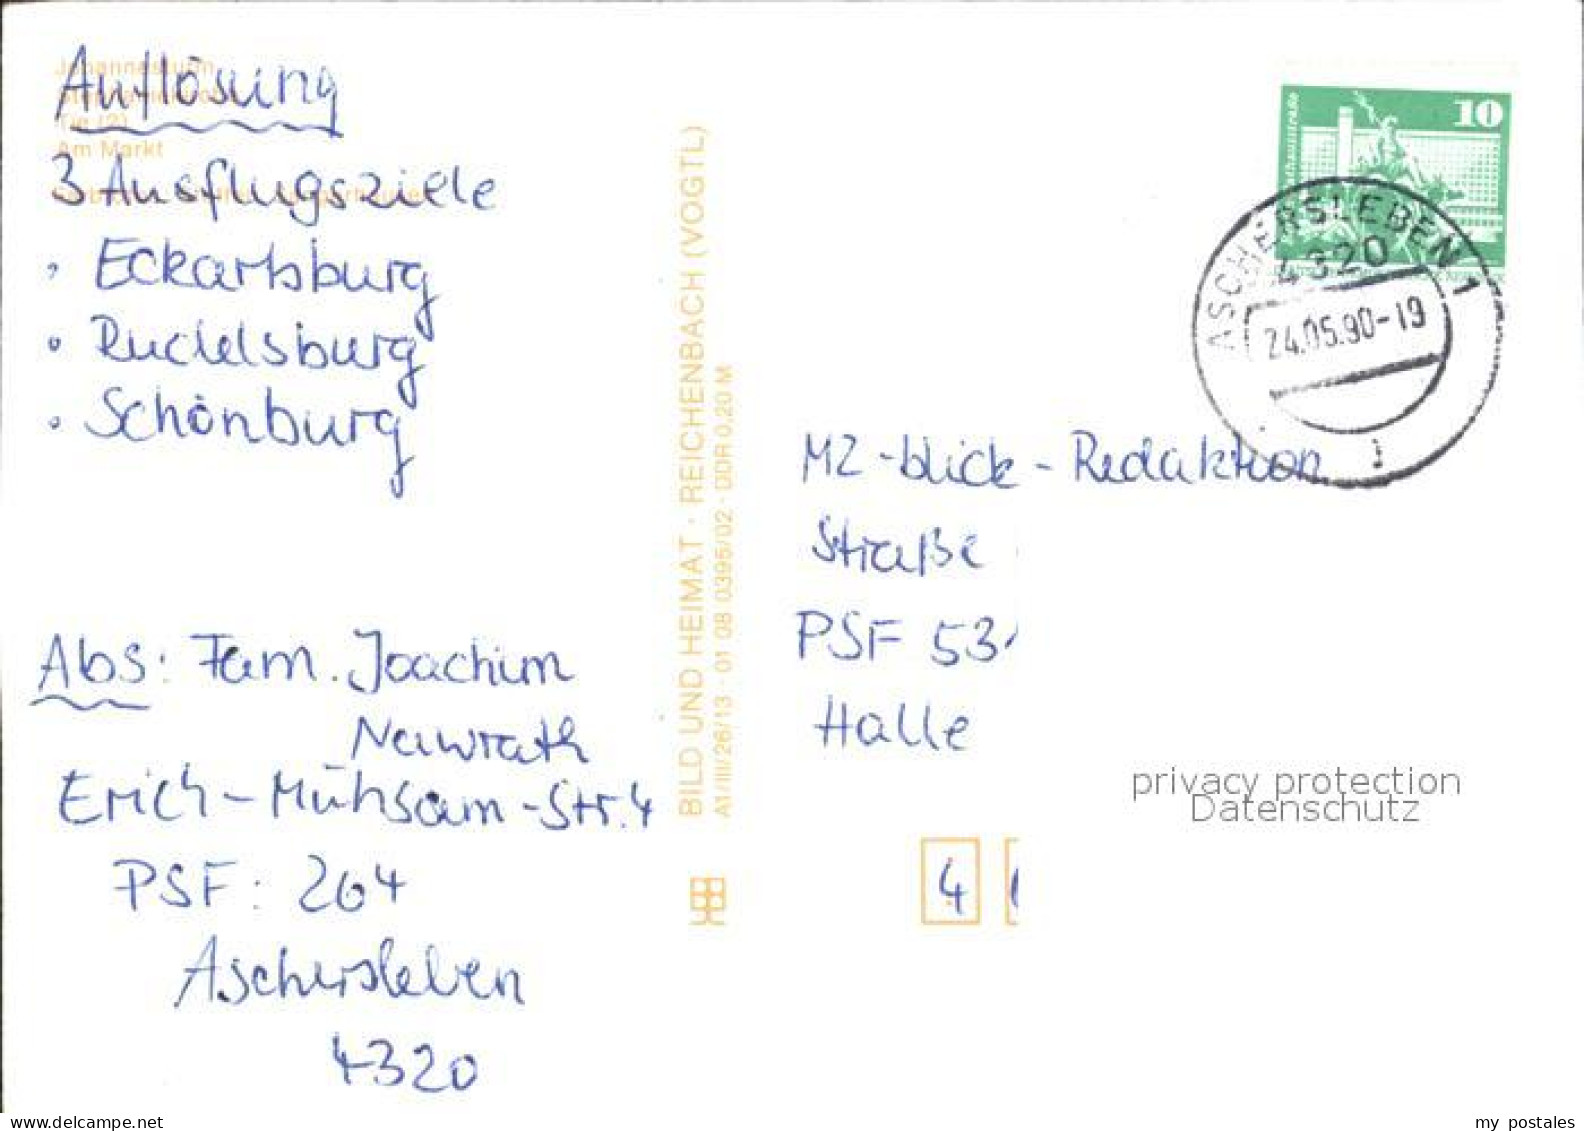 Johannesturm
Auflösung
Tie (2)
Am Markt
3 Ausflugsziele
• Eckartsburg
• Rudelsburg
• Schönburg
Abs: Fam. Joachim
Nawrath
Erich-Mühsam-Str. 4
PSF: 264
Aschersleben
4320
BILD UND HEIMAT · REICHENBACH (VOGTL)
A1/III/26/13 · 01 08 0395/02 · DDR 0,20 M
10
ASCHERSLEBEN 1
4320
24.05.90-19
MZ-blick-Redaktion
Straße
PSF 531
Halle
4
privacy protection
Datenschutz
my postales